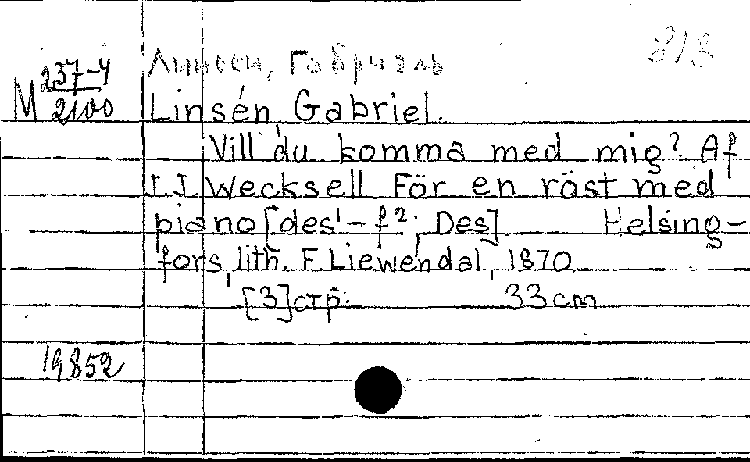 Линсен, Габриэль
M 237-4
2100
Linsén, Gabriel.
Vill du komma med mig? Af
J. J. Wecksell För en röst med
piano [des¹ – f²; Des] Helsing-
fors, lith. F. Liewendal, 1870
[3] стр. 33 cm
19852